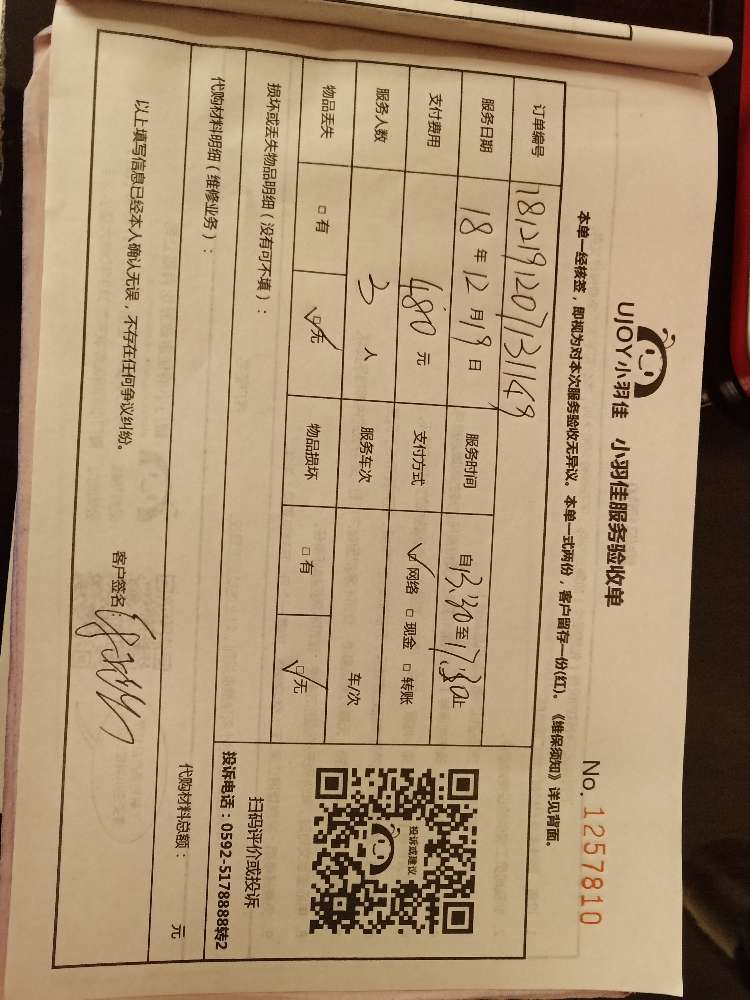 UJOY小羽佳 小羽佳服务验收单
No. 1257810
本单一经核签，即视为对本次服务验收无异议。本单一式两份，客户留存一份(红)。《维保须知》详见背面。
订单编号 1812191207131149
服务日期 18 年 12 月 19 日 服务时间 自 13:30 至 17:30 止
支付费用 480 元 支付方式 ☑ 网络 □ 现金 □ 转账
服务人数 3 人 服务车次 车/次
物品丢失 □ 有 ☑ 无 物品损坏 □ 有 ☑ 无
投诉或建议
扫码评价或投诉
投诉电话：0592-5178888转2
损坏或丢失物品明细（没有可不填）：
代购材料明细（维修业务）：
代购材料总额： 元
以上填写信息已经本人确认无误，不存在任何争议纠纷。
客户签名：